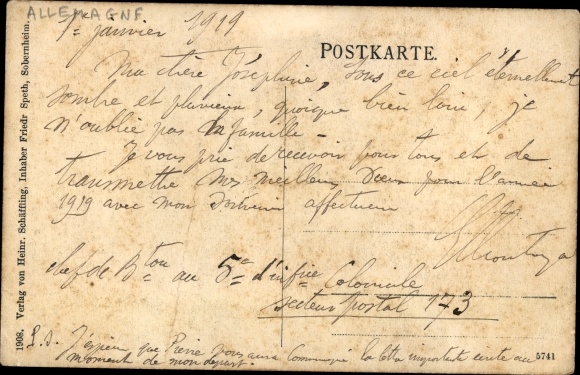 ALLEMAGNE
1er janvier 1919
POSTKARTE.
Ma chère Joséphine, Sous ce ciel éternellement
sombre et pluvieux, quoique bien loin, je
n'oublie pas la famille -
Je vous prie de recevoir pour tous et de
transmettre mes meilleurs vœux pour l'année
1919 avec mon souvenir affectueux
chef de Bton au 5e d'infie Coloniale
secteur postal 173
P.S. J'espère que Pierre vous aura communiqué la lettre importante écrite au
moment de mon départ.
1908. Verlag von Heinr. Schäffling, Inhaber Friedr Speth, Sobernheim.
5741